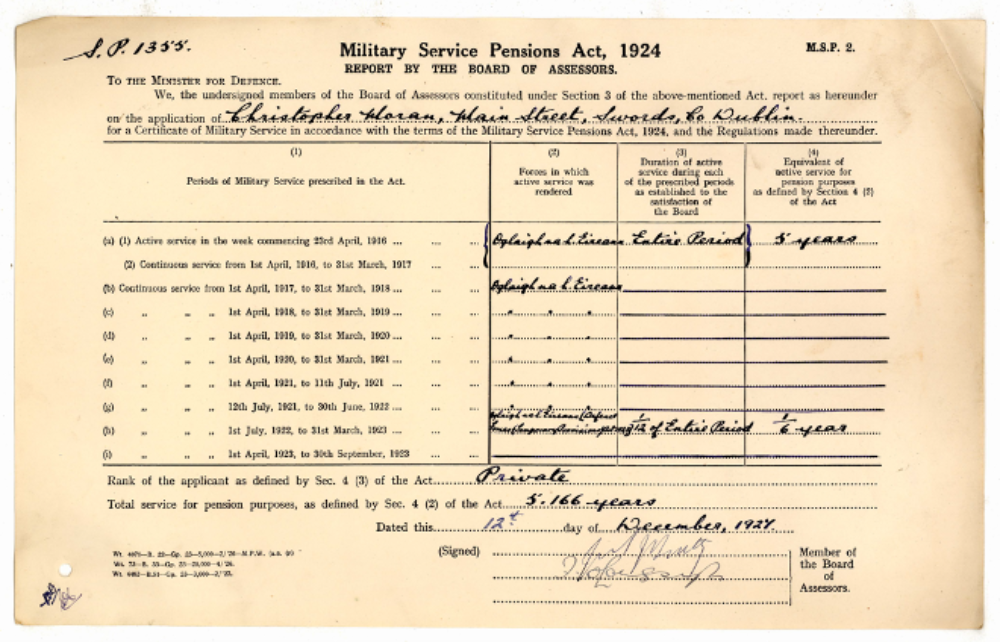 S.P. 1355.
Military Service Pensions Act, 1924
M.S.P. 2.
REPORT BY THE BOARD OF ASSESSORS.
TO THE MINISTER FOR DEFENCE.
We, the undersigned members of the Board of Assessors constituted under Section 3 of the above-mentioned Act, report as hereunder
on the application of Christopher Moran, Main Street, Swords, Co Dublin.
for a Certificate of Military Service in accordance with the terms of the Military Service Pensions Act, 1924, and the Regulations made thereunder.
(1)
Periods of Military Service prescribed in the Act.
(2)
Forces in which
active service was
rendered
(3)
Duration of active
service during each
of the prescribed periods
as established to the
satisfaction of
the Board
(4)
Equivalent of
active service for
pension purposes
as defined by Section 4 (2)
of the Act
(a) (1) Active service in the week commencing 23rd April, 1916 ... ... ... Oglaigh na h. Eireann Entire Period 5 years
(2) Continuous service from 1st April, 1916, to 31st March, 1917 ... ...
(b) Continuous service from 1st April, 1917, to 31st March, 1918 ... ... ... Oglaigh na h. Eireann
(c) „ „ „ 1st April, 1918, to 31st March, 1919 ... ... ... " " "
(d) „ „ „ 1st April, 1919, to 31st March, 1920 ... ... ... " " "
(e) „ „ „ 1st April, 1920, to 31st March, 1921 ... ... ... " " "
(f) „ „ „ 1st April, 1921, to 11th July, 1921 ... ... ... " " "
(g) „ „ „ 12th July, 1921, to 30th June, 1922 ... ... ...
(h) „ „ „ 1st July, 1922, to 31st March, 1923 ... ... ... Oglaigh na h Eireann (Defence Forces (Temporary Provisions) 1/12 of Entire Period 1/6 year
(i) „ „ „ 1st April, 1923, to 30th September, 1923 ... ...
Rank of the applicant as defined by Sec. 4 (3) of the Act Private
Total service for pension purposes, as defined by Sec. 4 (2) of the Act 5.166 years
Dated this 12th day of December, 1927.
(Signed)
Member of
the Board
of
Assessors.